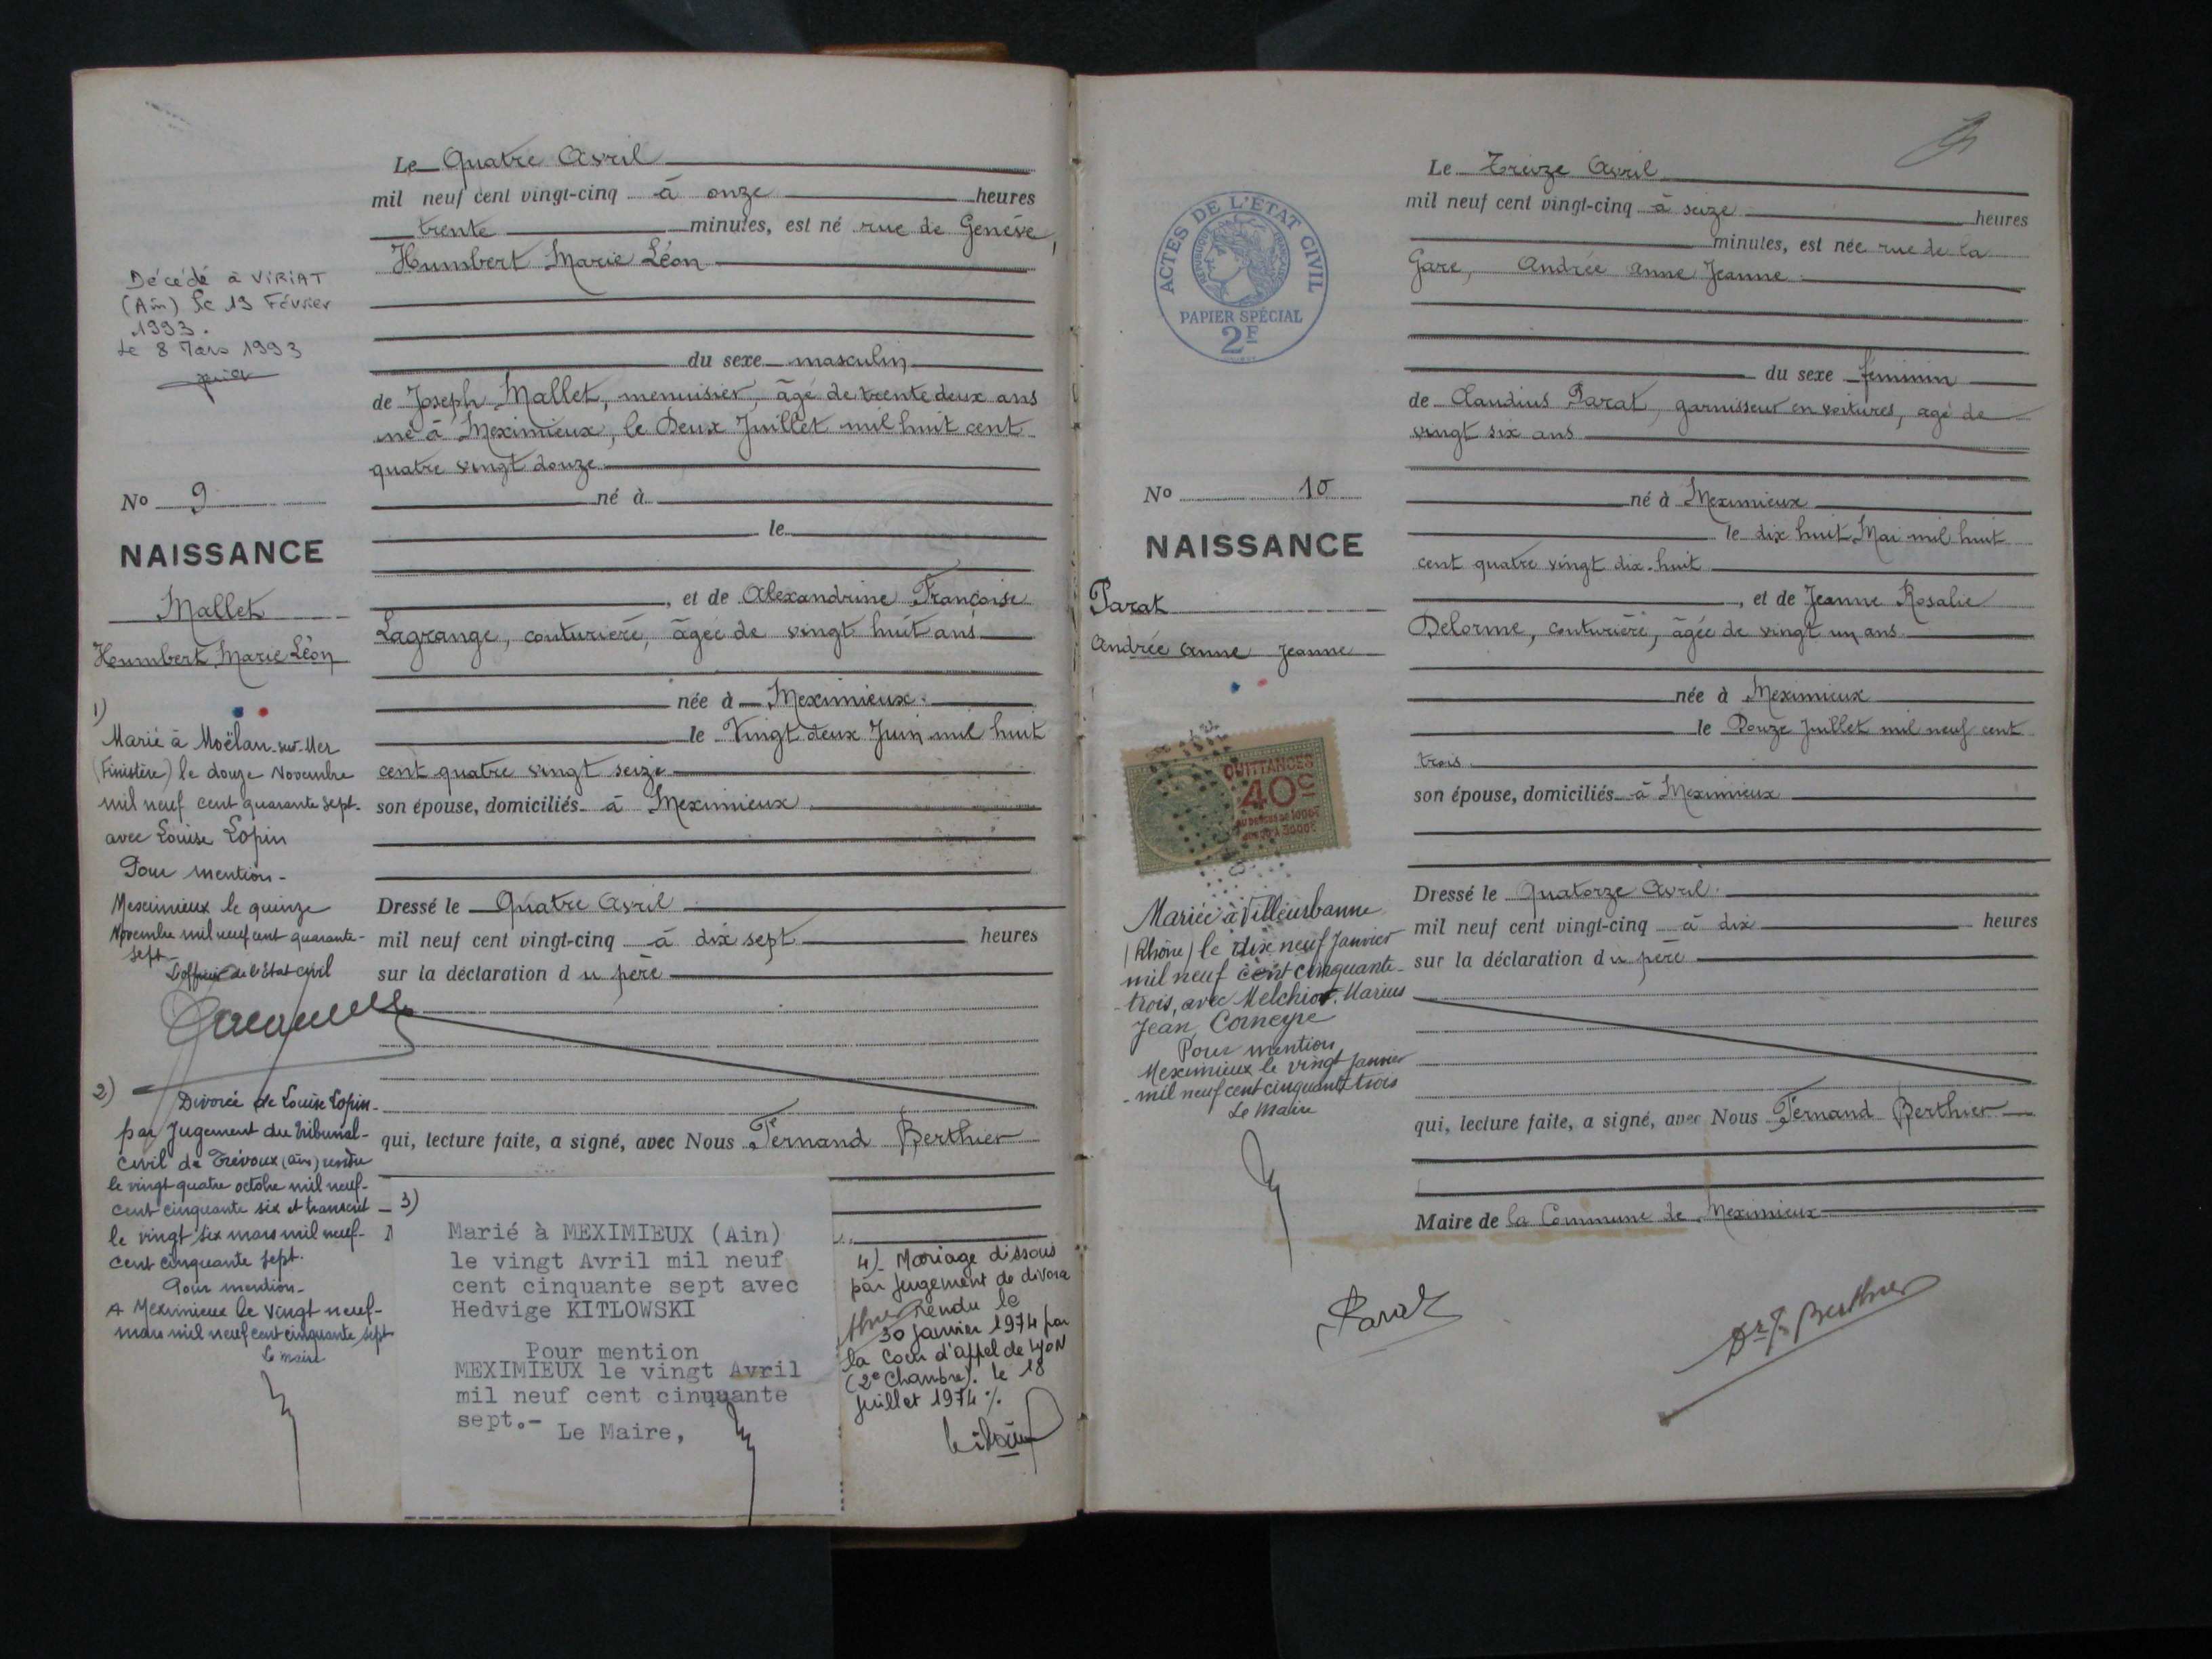 Le Quatre Avril
mil neuf cent vingt-cinq à onze heures
trente minutes, est né rue de Genève,
Humbert Marie Léon
du sexe masculin
de Joseph Mallet, menuisier, âgé de trente deux ans
né à Meximieux, le Deux Juillet mil huit cent
quatre vingt douze
né à
le
, et de Alexandrine Françoise
Lagrange, couturière, âgée de vingt huit ans
née à Meximieux.
le Vingt deux Juin mil huit
cent quatre vingt seize
son épouse, domiciliés à Meximieux
Dressé le Quatre Avril
mil neuf cent vingt-cinq à dix sept heures
sur la déclaration du père
qui, lecture faite, a signé, avec Nous Fernand Berthier
Décédé à VIRIAT
(Ain) le 13 Février
1993.
Le 8 Mars 1993
No 9
NAISSANCE
Mallet
Humbert Marie Léon
1)
Marié à Moëlan-sur-Mer
(Finistère) le douze Novembre
mil neuf cent quarante sept.
avec Louise Lopin
Pour mention-
Meximieux le quinze
Novembre mil neuf cent quarante-
sept-
L'officier de l'Etat civil
2)
Divorcé de Louise Lopin-
par Jugement du Tribunal-
civil de Trévoux (Ain) rendu
le vingt quatre octobre mil neuf-
cent cinquante six et transcrit
le vingt six mars mil neuf-
cent cinquante sept.
Pour mention-
A Meximieux le vingt neuf-
mars mil neuf cent cinquante sept
Le maire
3)
Marié à MEXIMIEUX (Ain)
le vingt Avril mil neuf
cent cinquante sept avec
Hedvige KITLOWSKI
Pour mention
MEXIMIEUX le vingt Avril
mil neuf cent cinquante
sept.-
Le Maire,
4)- Mariage dissous
par jugement de divorce
rendu le
30 janvier 1974 par
la Cour d'appel de LYON
(2e Chambre). le 18
juillet 1974 %.
Le Treize Avril
mil neuf cent vingt-cinq à seize heures
minutes, est née rue de la
Gare, Andrée Anne Jeanne
du sexe féminin
de Claudius Parat, garnisseur en voitures, âgé de
vingt six ans
né à Meximieux
le dix huit Mai mil huit
cent quatre vingt dix-huit
, et de Jeanne Rosalie
Delorme, couturière, âgée de vingt un ans
née à Meximieux
le Douze Juillet mil neuf cent
trois
son épouse, domiciliés à Meximieux
Dressé le Quatorze Avril
mil neuf cent vingt-cinq à dix heures
sur la déclaration du père
qui, lecture faite, a signé, avec Nous Fernand Berthier
Maire de la Commune de Meximieux
Parat
Dr F. Berthier
ACTES DE L'ETAT CIVIL
REPUBLIQUE FRANÇAISE
PAPIER SPÉCIAL
2F
No 10
NAISSANCE
Parat
Andrée Anne Jeanne
QUITTANCES
40c
Mariée à Villeurbanne
(Rhône) le dix neuf Janvier
mil neuf cent cinquante-
trois, avec Melchior Marius
Jean Corneyre
Pour mention
Meximieux le vingt janvier
mil neuf cent cinquante trois
Le Maire